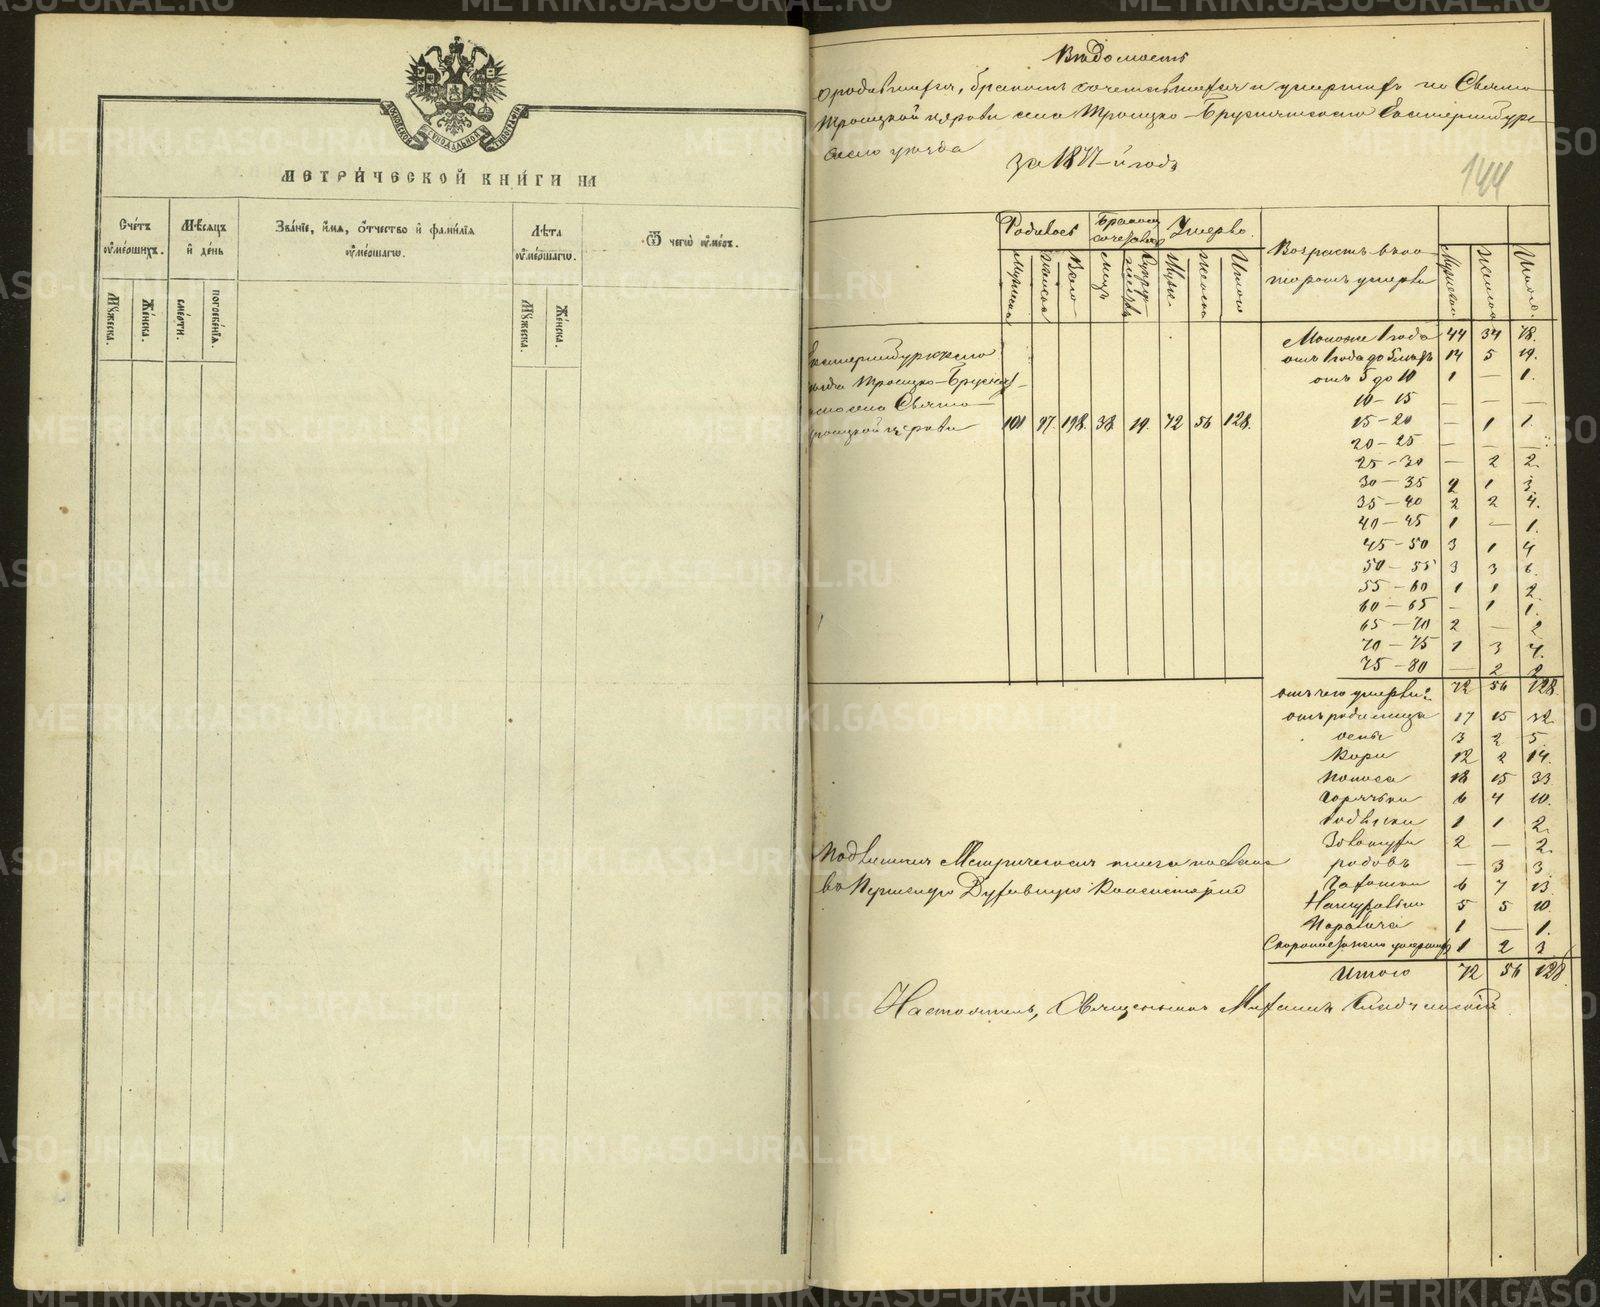 МЕТРИ́ЧЕСКОЙ КНИ́ГИ НА
Сче́тъ оу҆ме́ршихъ.
Мѣ́сяцъ и҆ де́нь
Зва́нїе, и҆́мя, ѻ҆́тчество и҆ фами́лїя оу҆ме́ршагѡ.
Лѣ́та оу҆ме́ршагѡ.
Ѿ чегѡ̀ оу҆́меръ.
Мꙋ́жеска.
Же́нска.
сме́рти.
погребе́нїѧ.
Мꙋ́жеска.
Же́нска.
Вѣдомость
о родившихся, бракомъ сочетавшихся и умершихъ по Свято-
Троицкой церкви села Троицко-Бруснятского Екатеринбург-
скаго уѣзда
за 1877-й годъ
144
Родилось
Бракомъ сочетовалось
Умерло.
Возрастъ въ ко-
торомъ умерли
Мужеска
Женска
Всего
Лицъ
Супружествъ
Муж.
Женск
Итого
Мужеска
Женска
Итого
Екатеринбургскаго
уѣзда Троицко-Брусня-
скаго села Свято-
Троицкой церкви 101 97. 198. 38. 19. 72 56 128.
Моложе 1 года 44 34 78.
отъ 1 года до 5 лѣтъ 14 5 19.
отъ 5 до 10 1 — 1.
10 — 15 — — —
15 — 20 — 1 1.
20 — 25 — — —
25 — 30 — 2 2.
30 — 35 2 1 3.
35 — 40 2 2 4.
40 — 45 1 — 1.
45 — 50 3 1 4
50 — 55 3 3 6.
55 — 60 1 1 2
60 — 65 — 1 1.
65 — 70 2 — 2
70 — 75 1 3 4.
75 — 80 — 2 2
отъ чего умерли? 72 56 128.
отъ родимца 17 15 32
оспы 3 2 5.
Кори 12 2 14.
Поноса 18 15 33
Горячки 6 4 10.
1 1 2.
2 — 2.
родовъ — 3 3.
Чахотки 6 7 13
Натурально 5 5 10.
1 — 1.
Скоропостижно умершихъ 1 2 3.
Итого 72 56 128.
Подлинная Метрическая книга послана
въ Пермскую Духовную Консисторію
Настоятель, Священникъ Михаилъ